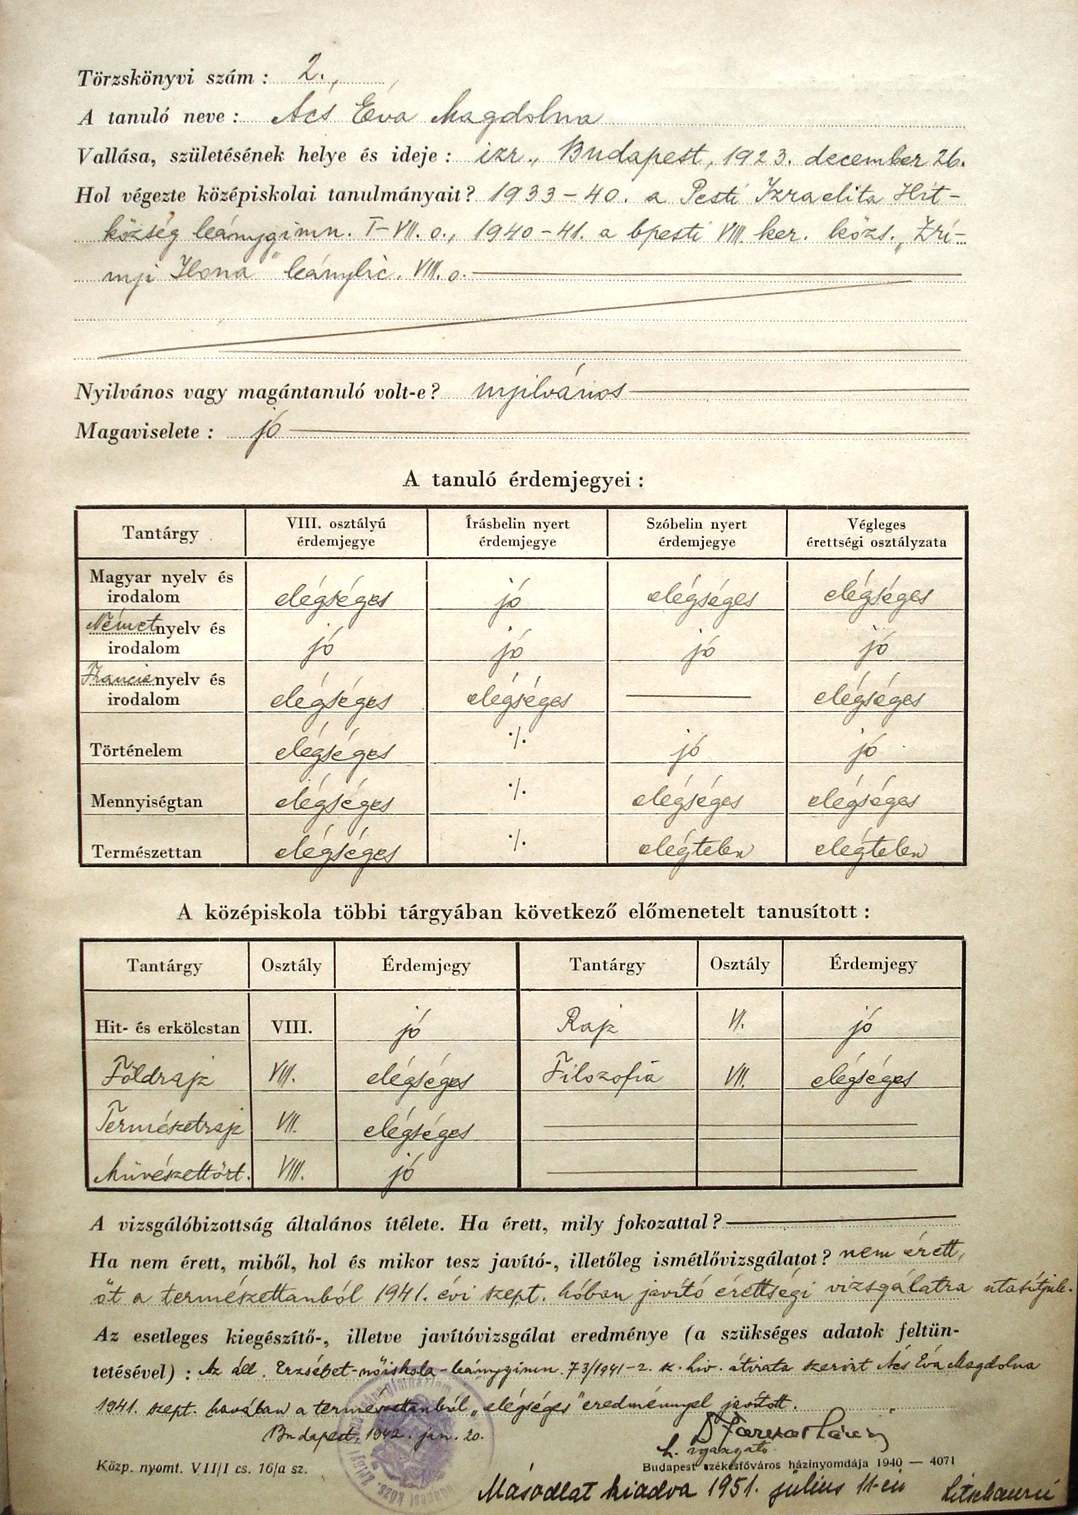 Törzskönyvi szám : 2.,
A tanuló neve : Ács Éva Magdolna
Vallása, születésének helye és ideje : izr., Budapest, 1923. december 26.
Hol végezte középiskolai tanulmányait? 1933-40. a Pesti Izraelita Hit-
község leánygimn. I-VII. o., 1940-41. a bpesti VIII. ker. közs. „Zrí-
nyi Ilona" leánylic. VIII. o.
Nyilvános vagy magántanuló volt-e? nyilvános
Magaviselete : jó
A tanuló érdemjegyei :
Tantárgy VIII. osztályú érdemjegye Írásbelin nyert érdemjegye Szóbelin nyert érdemjegye Végleges érettségi osztályzata
Magyar nyelv és irodalom elégséges jó elégséges elégséges
Német nyelv és irodalom jó jó jó jó
Francia nyelv és irodalom elégséges elégséges — elégséges
Történelem elégséges ·/. jó jó
Mennyiségtan elégséges ·/. elégséges elégséges
Természettan elégséges ·/. elégtelen elégtelen
A középiskola többi tárgyában következő előmenetelt tanusított :
Tantárgy Osztály Érdemjegy Tantárgy Osztály Érdemjegy
Hit- és erkölcstan VIII. jó Rajz VI. jó
Földrajz VIII. elégséges Filozofia VII. elégséges
Természetrajz VII. elégséges
Művészettört. VIII. jó
A vizsgálóbizottság általános ítélete. Ha érett, mily fokozattal?
Ha nem érett, miből, hol és mikor tesz javító-, illetőleg ismétlővizsgálatot? nem érett,
őt a természettanból 1941. évi szept. hóban javító érettségi vizsgálatra utasítjuk.
Az esetleges kiegészítő-, illetve javítóvizsgálat eredménye (a szükséges adatok feltün-
tetésével) : Az áll. Erzsébet-nőiskola-leánygimn. 73/1941-2. sz. hiv. átirata szerint Ács Éva Magdolna
1941. szept. havában a természettanból „elégséges" eredménnyel javított.
Budapest, 1942. jan. 20.
h. igazgató
Közp. nyomt. VII/I cs. 16/a sz.
Budapest székesfőváros házinyomdája 1940 — 4071
Másodlat kiadva 1951. július 11-én